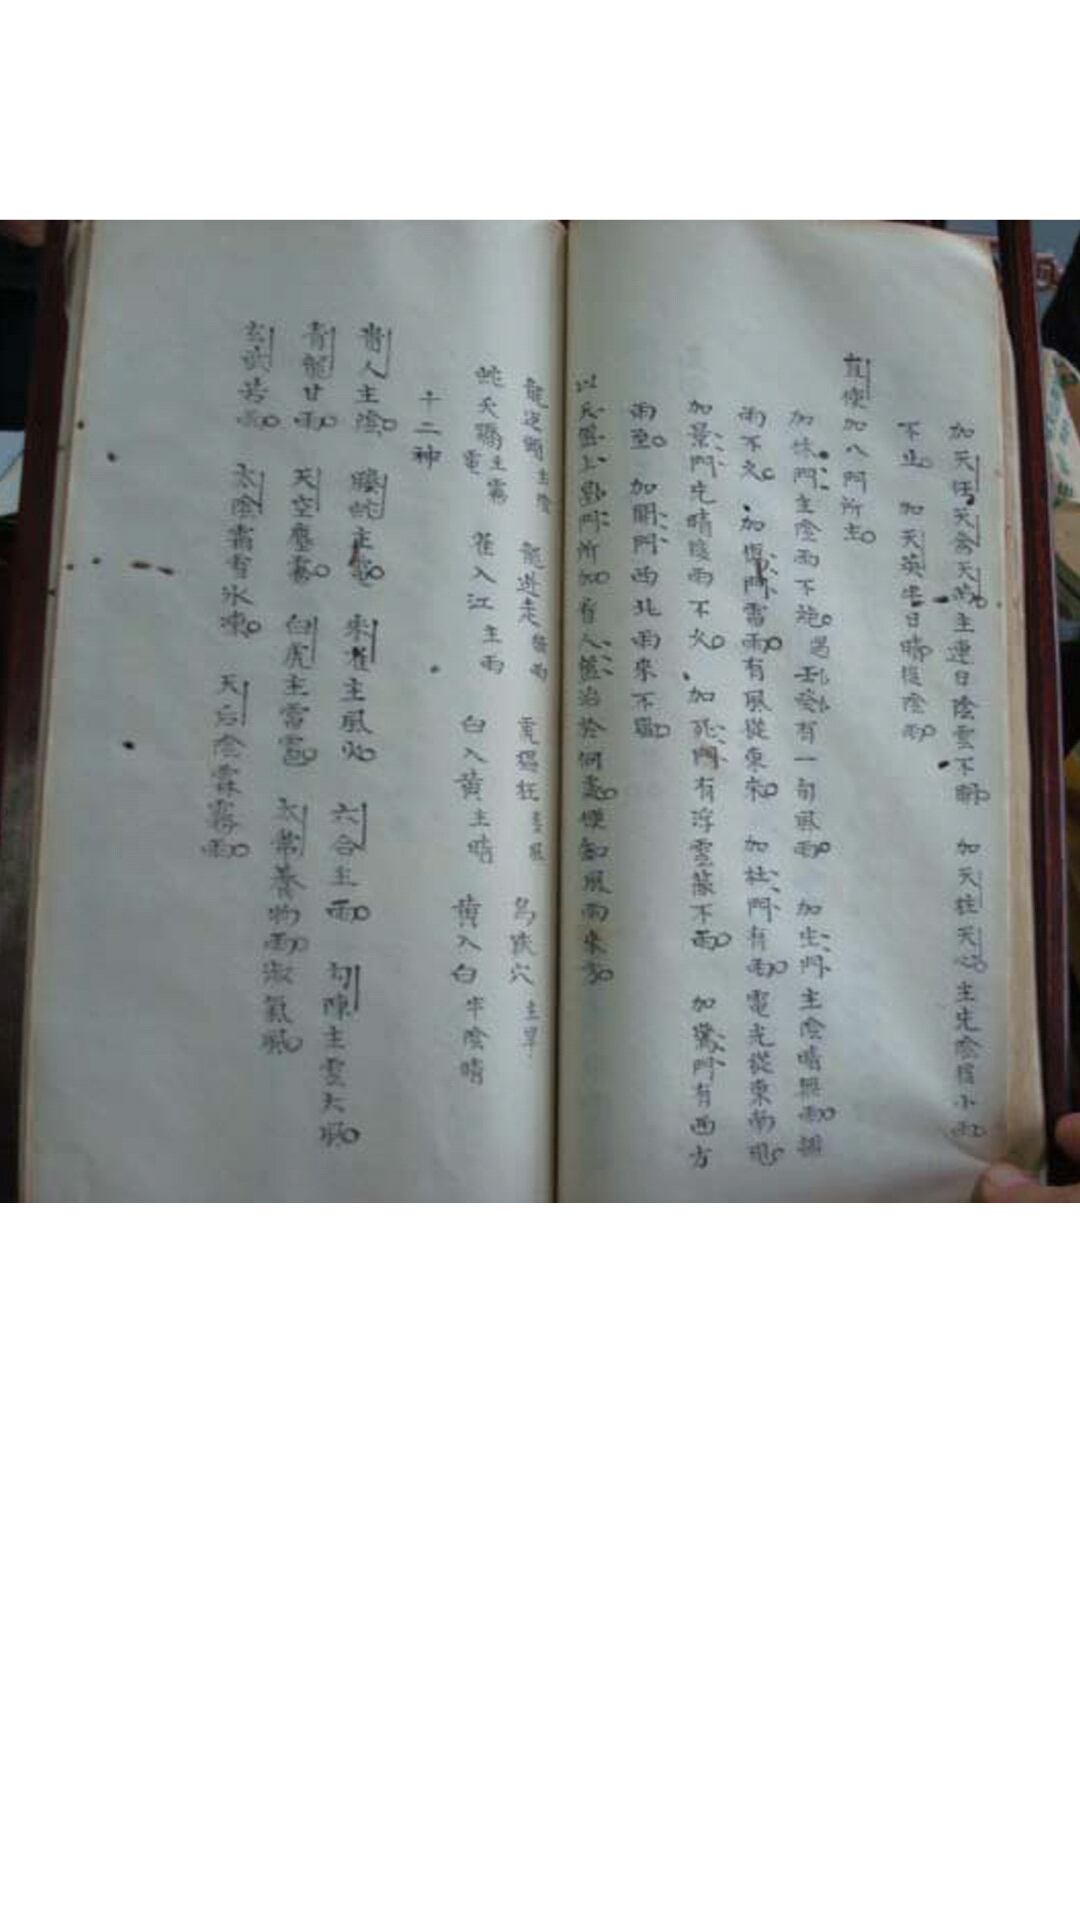 加天任天禽天芮主連日陰雲不開 加天柱天心主先陰後小雨
不止 加天英半日晴後陰雨
直使加八門所主
加休門主陰雨不絕 遇壬癸有一旬風雨 加生門主陰晴無雨
雨不久 加傷門雷雨有風從東來 加杜門有雨電光從東南現
加景門先晴後雨不久 加死門有浮雲蔽不雨 加驚門有西方
雨至 加開門西北雨來不
以天盤上門所加有人盤治於何處便知風雨來
龍返 主陰 龍逃走 雨 主風 烏跌穴 主旱
蛇夭矯主電霧 雀入江主雨 白入黃主晴 黃入白半陰晴
十二神
貴人主陰 騰蛇主電 朱雀主風火 六合主雨 勾陳主雲大風
青龍甘雨 天空塵霧 白虎主雷雹 太常養物雨淑氣風
玄武苦雨 太陰霜雪氷凍 天后陰霖霧雨